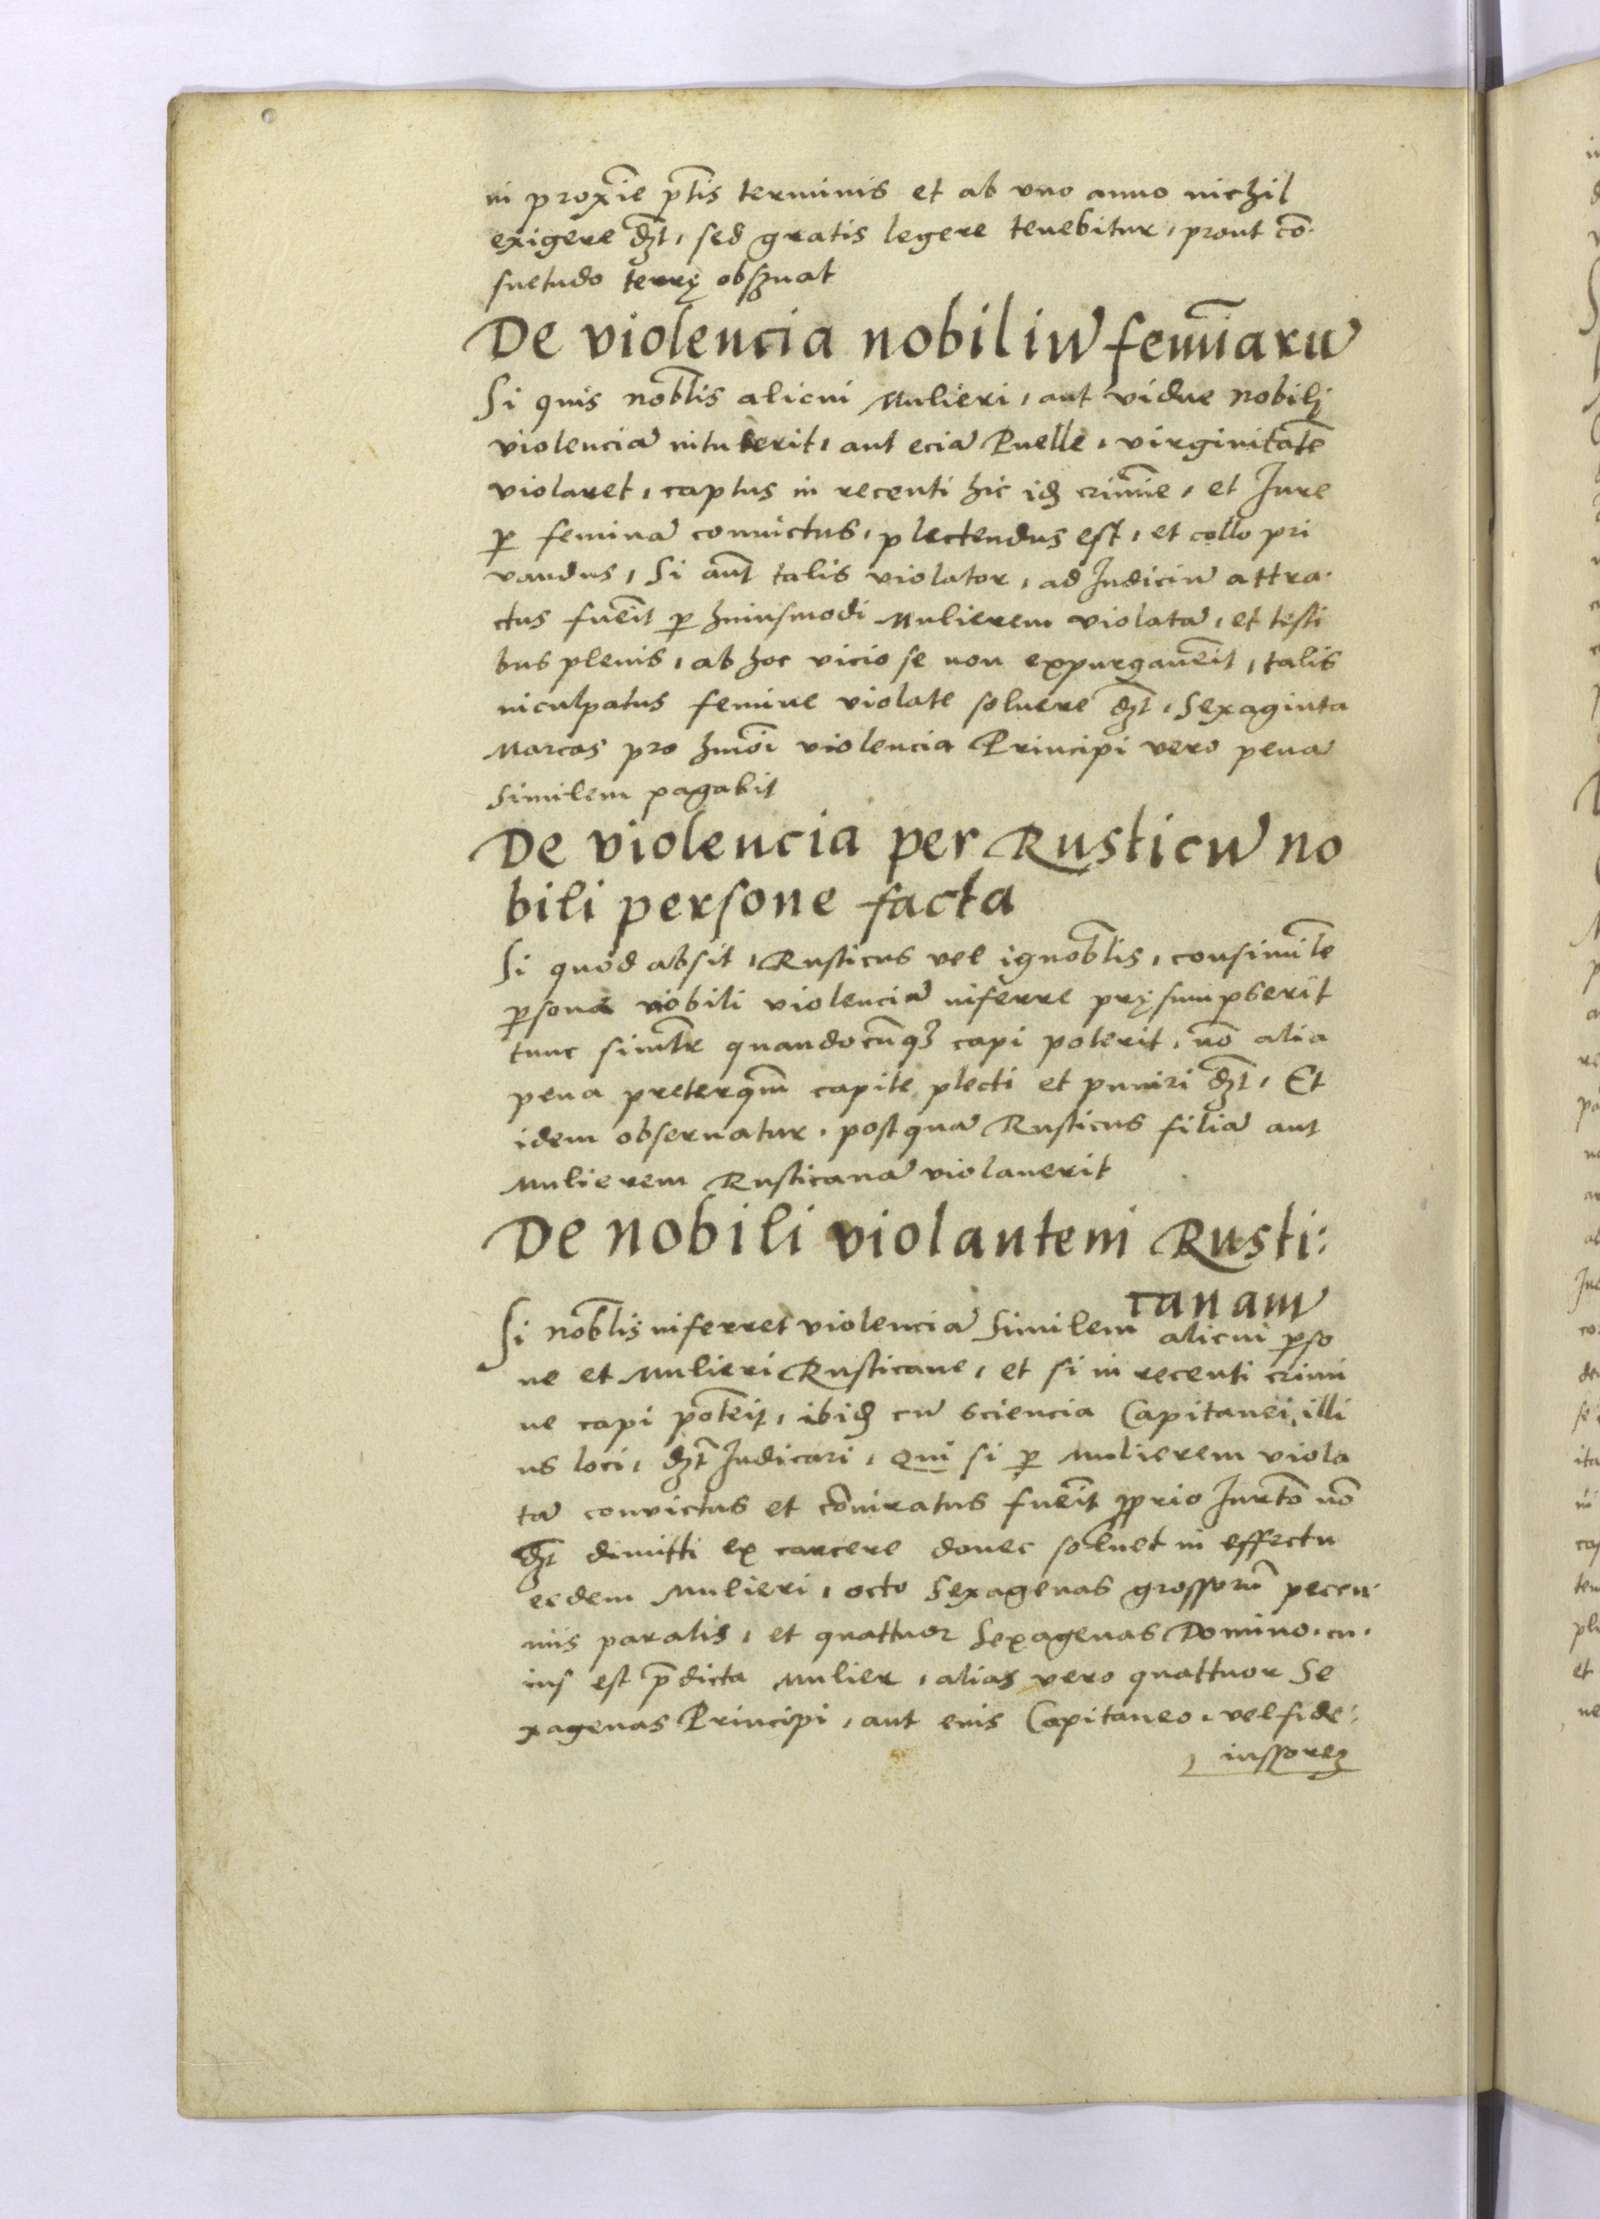 in proxĩe p̃tis terminis et ab vno anno nichil
exigere dꝫt, sed gratis legere tenebitur, prout cõ-
suetudo terrę obsꝫuat
De violencia nobiliũ femĩarũ
Si quis nob̃lis alicui Mulieri, aut vidue nobilj
violenciã intulerit, aut eciã Puelle, virginitatẽ
violaret, captus in recenti hic idꝫ crimĩe, et Jure
ꝑ feminã conuictus, plectendus est, et collo pri
vandus, Si aũt talis violator, ad Judiciũ attra-
ctus fuẽit ꝑ huiusmodi Mulierem violatã, et testi
bus plenis, ab hoc vicio se non expurgauẽit, talis
inculpatus femine violate soluere dꝫt, Sexaginta
Marcas pro hmõi violencia Principi vero penã
Similem pagabit
De violencia per Rusticũ no
bili persone facta
Si quod absit, Rusticus vel ignob̃lis, consimil̃e
ꝑsonæ nobili violenciã inferre pręsumpserit
tunc simĩlr quandocũqꝫ capi poterit, nõ alia
pena preterqm̃ capite plecti et puniri dꝫt, Et
idem obseruatur, postquã Rusticus filiã aut
Mulierem Rusticanã violauerit
De nobili violantem Rusti:
canam
Si nob̃lis inferret violenciã Similem alicui ꝑso
ne et Mulieri Rusticane, et si in recenti crimi
ne capi potẽit, ibidꝫ cũ sciencia Capitanei, illi
us loci, dꝫt Judicari, Qui si ꝑ Mulierem viola
tã convictus et cõniratus fuẽit ꝓprio Jurtõ nõ
dꝫt dimitti ex carcere donec soluet in effectu
eidem Mulieri, octo Sexagenas grossorũ peccu-
niis paratis, et quattuor Sexagenas Domino, cu-
ius est p̃dicta Mulier, alias vero quattuor Se
xagenas Principi, aut eius Capitaneo, vel fide:
iussoreꝫ